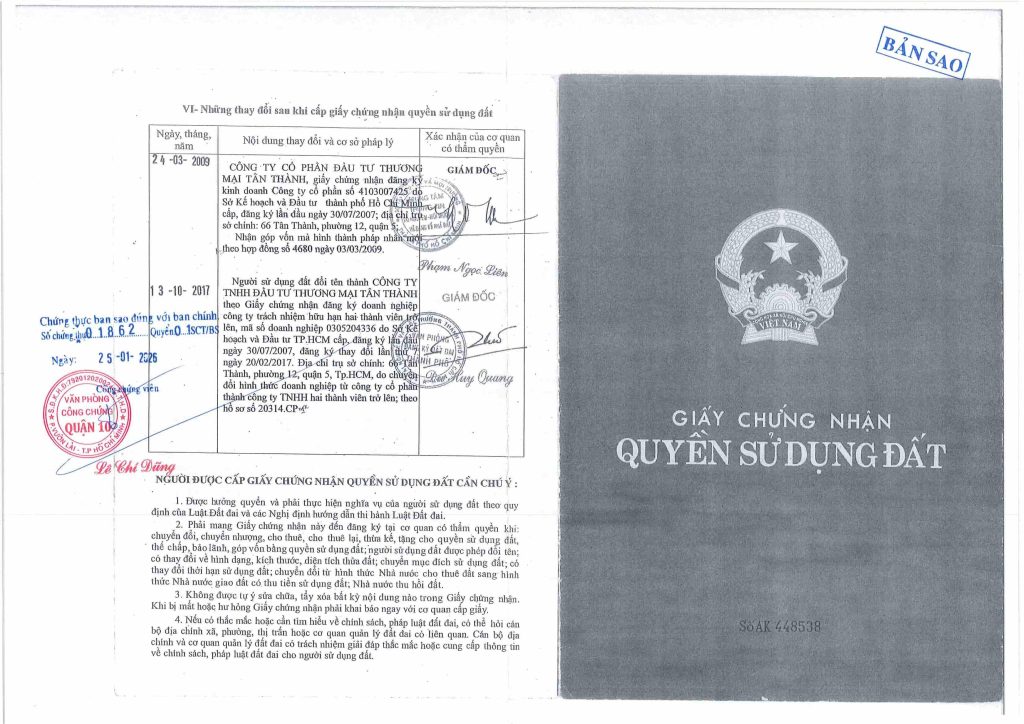 BẢN SAO
VI- Những thay đổi sau khi cấp giấy chứng nhận quyền sử dụng đất
Ngày, tháng, năm
Nội dung thay đổi và cơ sở pháp lý
Xác nhận của cơ quan có thẩm quyền
24-03-2009
CÔNG TY CỔ PHẦN ĐẦU TƯ THƯƠNG
MẠI TÂN THÀNH, giấy chứng nhận đăng ký
kinh doanh Công ty cổ phần số 4103007425 do
Sở Kế hoạch và Đầu tư thành phố Hồ Chí Minh
cấp, đăng ký lần đầu ngày 30/07/2007; địa chỉ trụ
sở chính: 66 Tân Thành, phường 12, quận 5;
Nhận góp vốn mà hình thành pháp nhân mới
theo hợp đồng số 4680 ngày 03/03/2009.
GIÁM ĐỐC
Phạm Ngọc Liên
13-10-2017
Người sử dụng đất đổi tên thành CÔNG TY
TNHH ĐẦU TƯ THƯƠNG MẠI TÂN THÀNH
theo Giấy chứng nhận đăng ký doanh nghiệp
công ty trách nhiệm hữu hạn hai thành viên trở
lên, mã số doanh nghiệp 0305204336 do Sở Kế
hoạch và Đầu tư TP.HCM cấp, đăng ký lần đầu
ngày 30/07/2007, đăng ký thay đổi lần thứ 7
ngày 20/02/2017. Địa chỉ trụ sở chính: 66 Tân
Thành, phường 12, quận 5, Tp.HCM, do chuyển
đổi hình thức doanh nghiệp từ công ty cổ phần
thành công ty TNHH hai thành viên trở lên; theo
hồ sơ số 20314.CP
GIÁM ĐỐC
Huy Quang
Chứng thực bản sao đúng với bản chính
Số chứng thực 01862 Quyển 01 SCT/BS
Ngày: 25-01-2026
Công chứng viên
VĂN PHÒNG
CÔNG CHỨNG
QUẬN 10
P.VƯỜN LÀI - T.P HỒ CHÍ MINH
Lê Chí Dũng
NGƯỜI ĐƯỢC CẤP GIẤY CHỨNG NHẬN QUYỀN SỬ DỤNG ĐẤT CẦN CHÚ Ý :
1. Được hưởng quyền và phải thực hiện nghĩa vụ của người sử dụng đất theo quy
định của Luật Đất đai và các Nghị định hướng dẫn thi hành Luật Đất đai.
2. Phải mang Giấy chứng nhận này đến đăng ký tại cơ quan có thẩm quyền khi:
chuyển đổi, chuyển nhượng, cho thuê, cho thuê lại, thừa kế, tặng cho quyền sử dụng đất,
thế chấp, bảo lãnh, góp vốn bằng quyền sử dụng đất; người sử dụng đất được phép đổi tên;
có thay đổi về hình dạng, kích thước, diện tích thửa đất; chuyển mục đích sử dụng đất; có
thay đổi thời hạn sử dụng đất; chuyển đổi từ hình thức Nhà nước cho thuê đất sang hình
thức Nhà nước giao đất có thu tiền sử dụng đất; Nhà nước thu hồi đất.
3. Không được tự ý sửa chữa, tẩy xóa bất kỳ nội dung nào trong Giấy chứng nhận.
Khi bị mất hoặc hư hỏng Giấy chứng nhận phải khai báo ngay với cơ quan cấp giấy.
4. Nếu có thắc mắc hoặc cần tìm hiểu về chính sách, pháp luật đất đai, có thể hỏi cán
bộ địa chính xã, phường, thị trấn hoặc cơ quan quản lý đất đai có liên quan. Cán bộ địa
chính và cơ quan quản lý đất đai có trách nhiệm giải đáp thắc mắc hoặc cung cấp thông tin
về chính sách, pháp luật đất đai cho người sử dụng đất.
VIỆT NAM
GIẤY CHỨNG NHẬN
QUYỀN SỬ DỤNG ĐẤT
Số AK 448538